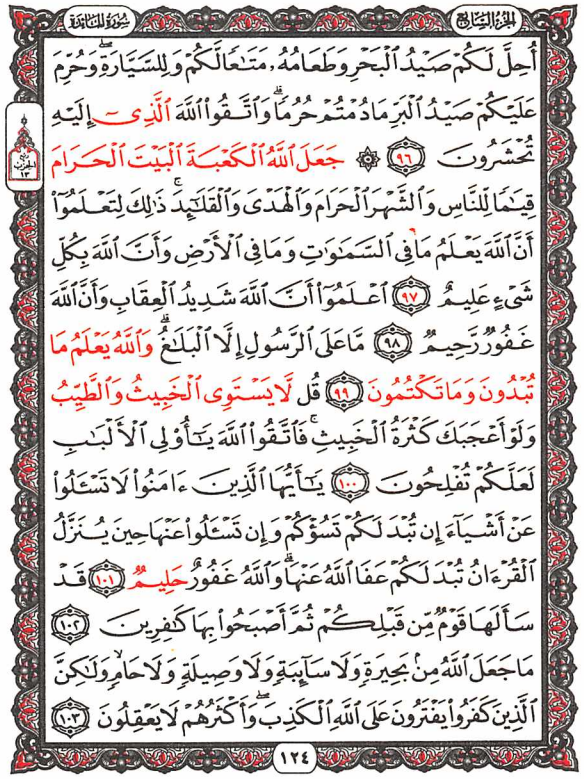 الجزء السابع
سورة المائدة
أُحِلَّ لَكُمْ صَيْدُ ٱلْبَحْرِ وَطَعَامُهُۥ مَتَٰعًا لَّكُمْ وَلِلسَّيَّارَةِ ۖ وَحُرِّمَ
عَلَيْكُمْ صَيْدُ ٱلْبَرِّ مَا دُمْتُمْ حُرُمًا ۗ وَٱتَّقُوا۟ ٱللَّهَ ٱلَّذِىٓ إِلَيْهِ
تُحْشَرُونَ ٩٦ ۞ جَعَلَ ٱللَّهُ ٱلْكَعْبَةَ ٱلْبَيْتَ ٱلْحَرَامَ
ربع الحزب ١٣
قِيَٰمًا لِّلنَّاسِ وَٱلشَّهْرَ ٱلْحَرَامَ وَٱلْهَدْىَ وَٱلْقَلَٰٓئِدَ ۚ ذَٰلِكَ لِتَعْلَمُوٓا۟
أَنَّ ٱللَّهَ يَعْلَمُ مَا فِى ٱلسَّمَٰوَٰتِ وَمَا فِى ٱلْأَرْضِ وَأَنَّ ٱللَّهَ بِكُلِّ
شَىْءٍ عَلِيمٌ ٩٧ ٱعْلَمُوٓا۟ أَنَّ ٱللَّهَ شَدِيدُ ٱلْعِقَابِ وَأَنَّ ٱللَّهَ
غَفُورٌ رَّحِيمٌ ٩٨ مَّا عَلَى ٱلرَّسُولِ إِلَّا ٱلْبَلَٰغُ ۗ وَٱللَّهُ يَعْلَمُ مَا
تُبْدُونَ وَمَا تَكْتُمُونَ ٩٩ قُل لَّا يَسْتَوِى ٱلْخَبِيثُ وَٱلطَّيِّبُ
وَلَوْ أَعْجَبَكَ كَثْرَةُ ٱلْخَبِيثِ ۚ فَٱتَّقُوا۟ ٱللَّهَ يَٰٓأُو۟لِى ٱلْأَلْبَٰبِ
لَعَلَّكُمْ تُفْلِحُونَ ١٠٠ يَٰٓأَيُّهَا ٱلَّذِينَ ءَامَنُوا۟ لَا تَسْـَٔلُوا۟
عَنْ أَشْيَآءَ إِن تُبْدَ لَكُمْ تَسُؤْكُمْ وَإِن تَسْـَٔلُوا۟ عَنْهَا حِينَ يُنَزَّلُ
ٱلْقُرْءَانُ تُبْدَ لَكُمْ عَفَا ٱللَّهُ عَنْهَا ۗ وَٱللَّهُ غَفُورٌ حَلِيمٌ ١٠١ قَدْ
سَأَلَهَا قَوْمٌ مِّن قَبْلِكُمْ ثُمَّ أَصْبَحُوا۟ بِهَا كَٰفِرِينَ ١٠٢
مَا جَعَلَ ٱللَّهُ مِنۢ بَحِيرَةٍ وَلَا سَآئِبَةٍ وَلَا وَصِيلَةٍ وَلَا حَامٍ ۙ وَلَٰكِنَّ
ٱلَّذِينَ كَفَرُوا۟ يَفْتَرُونَ عَلَى ٱللَّهِ ٱلْكَذِبَ ۖ وَأَكْثَرُهُمْ لَا يَعْقِلُونَ ١٠٣
١٢٤